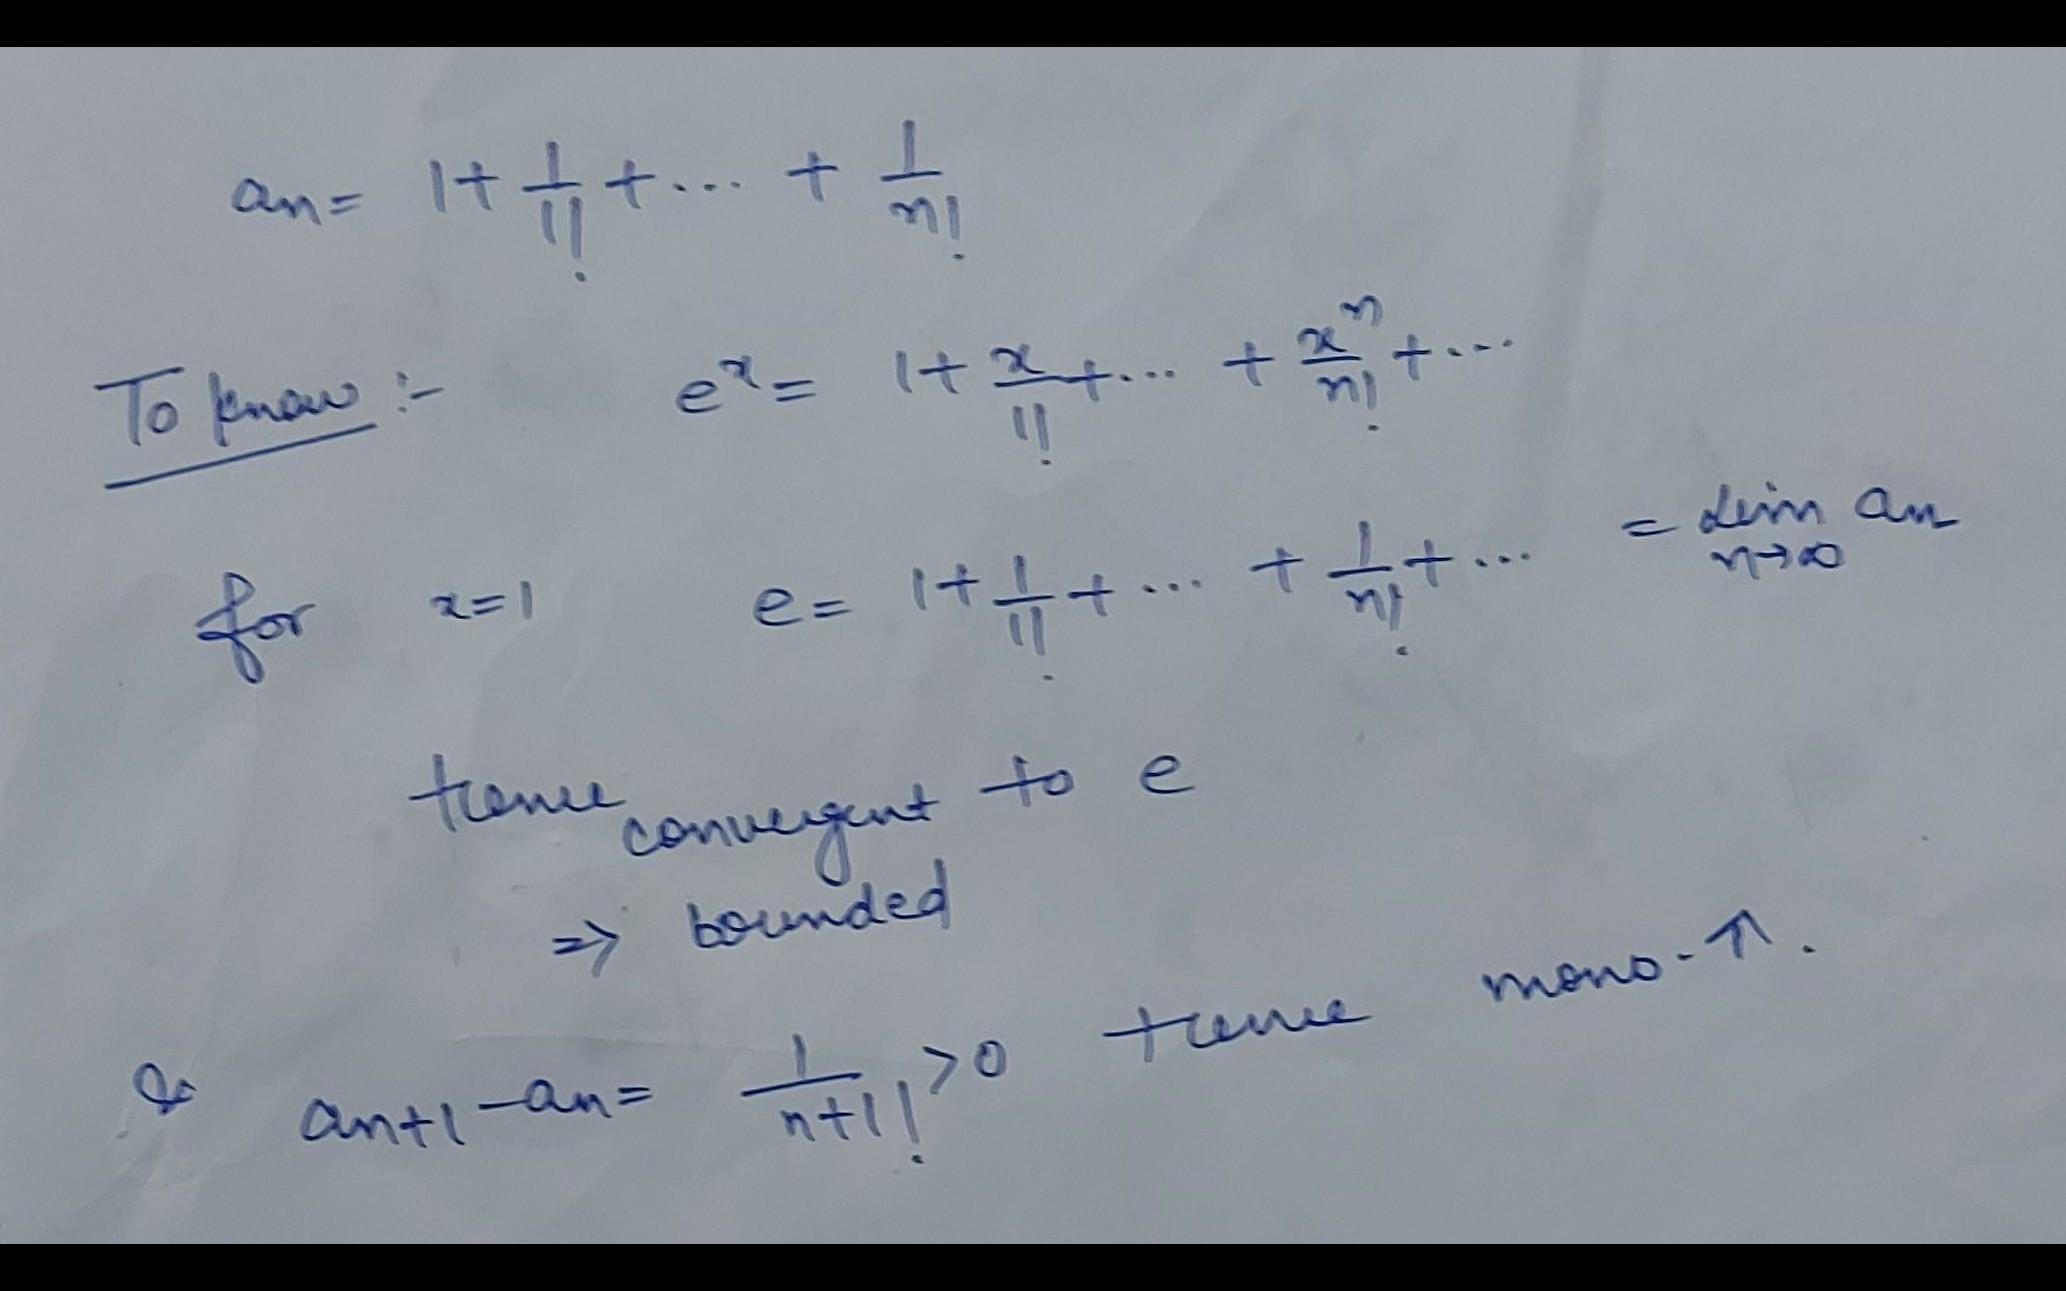 an = 1 + 1/1! + ... + 1/n!
To know :- e^x = 1 + x/1! + ... + x^n/n! + ...
for x=1 e = 1 + 1/1! + ... + 1/n! + ... = Lim n→∞ an
Hence convergent to e
⇒ bounded
& an+1 - an = 1/n+1! > 0 Hence mono. ↑.